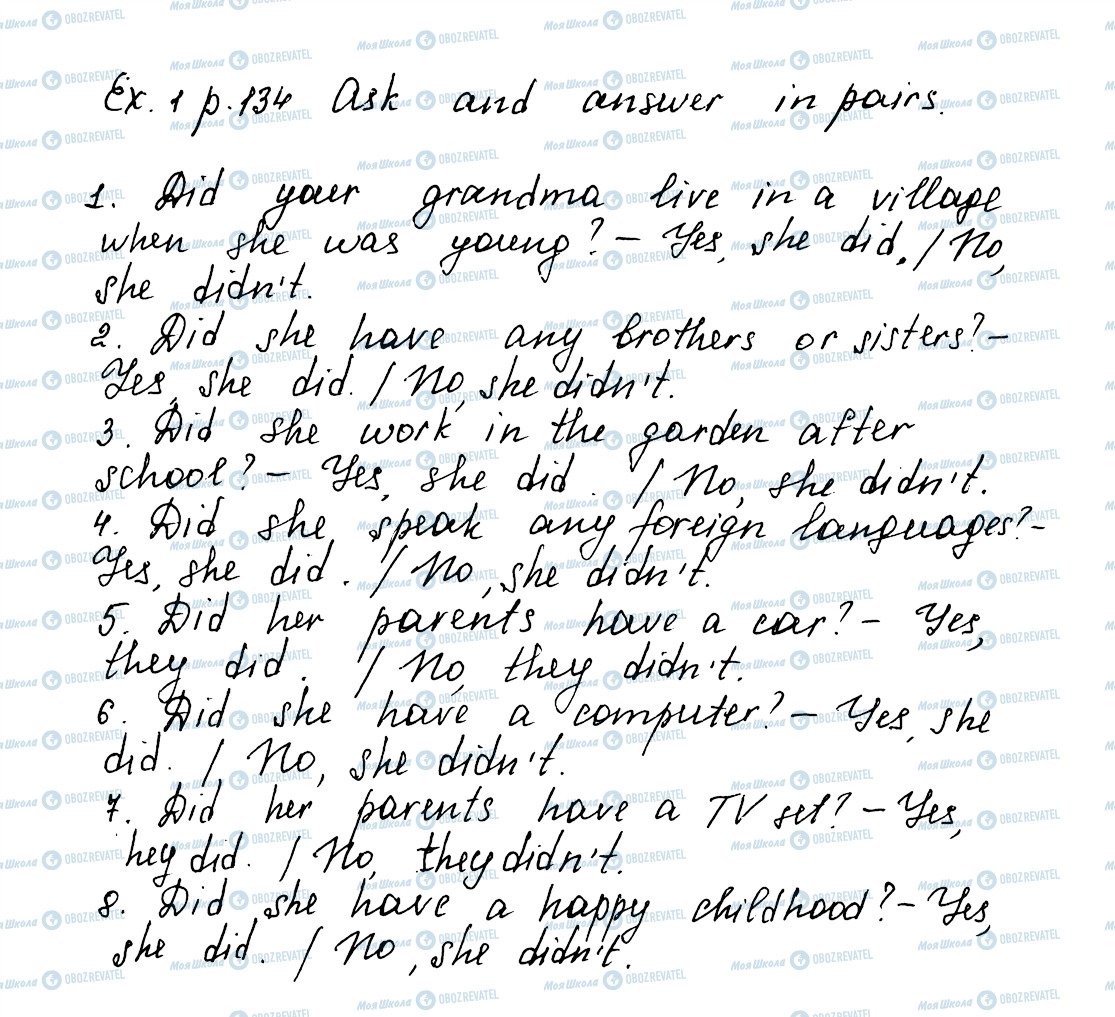 Ex. 1 p. 134 Ask and answer in pairs.
1. Did your grandma live in a village
when she was young? – Yes, she did. / No,
she didn't.
2. Did she have any brothers or sisters? –
Yes, she did. / No, she didn't.
3. Did she work in the garden after
school? – Yes, she did. / No, she didn't.
4. Did she speak any foreign languages? –
Yes, she did. / No, she didn't.
5. Did her parents have a car? – Yes,
they did. / No, they didn't.
6. Did she have a computer? – Yes, she
did. / No, she didn't.
7. Did her parents have a TV set? – Yes,
hey did. / No, they didn't.
8. Did she have a happy childhood? – Yes,
she did. / No, she didn't.